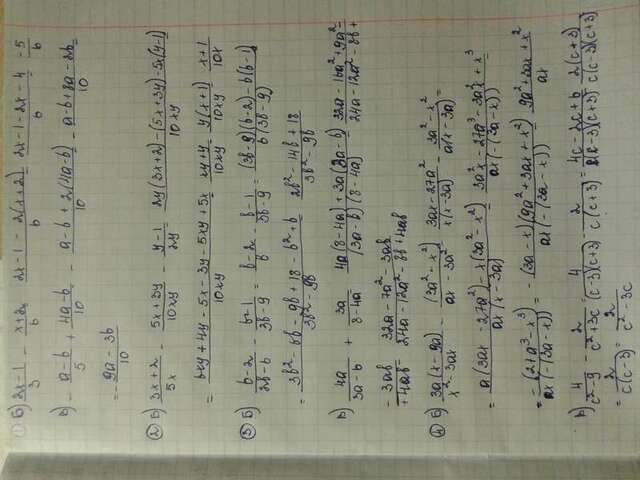 ① б) (2x-1)/3 - (x+2)/6 = (2x-1-2(x+2))/6 = (2x-1-2x-4)/6 = -5/6
в) -(a-b)/5 + (4a-b)/10 = (-a-b+2(4a-b))/10 = (-a-b+8a-2b)/10 =
= -(9a-3b)/10
② б) (3x+2)/5x - (5x+3y)/10xy - (y-1)/2y = (2y(3x+2)-(5x+3y)-5x(y-1))/10xy
= (6xy+4y-5x-3y-5xy+5x)/10xy = (xy+y)/10xy = y(x+1)/10xy = (x+1)/10x
③ б) (b-2)/(3b-6) - (b-1)/(3b-9) = (b-2)/b - (b-1)/(3b-9) = ((3b-9)(b-2)-b(b-1))/b(3b-9)
= (3b²-6b-9b+18-b²+b)/(3b²-9b) = (2b²-14b+18)/(3b²-9b)
в) 4a/(3a-b) + 3a/(8-4a) = (4a(8-4a)+3a(3a-b))/((3a-b)(8-4a)) = (32a-16a²+9a²-
-3ab)/(24a-12a²-8b+
+4ab) = (32a-7a²-3ab)/(24a-12a²-8b+4ab)
④ б) 3a(1-9a)/(x²-3ax) - (3a²-x²)/(ax-3a²) = (3ax-27a²)/x(x-3a) - (3a²-x²)/a(x-3a) =
= (a(3ax-27a²)-x(3a²-x²))/ax(x-3a) = (3a²x-27a³-3a²x+x³)/ax(-(3a-x)) =
= -(27a³-x³)/ax(-(3a-x)) = (3a-x)(9a²+3ax+x²)/ax(-(3a-x)) = (9a²+3ax+x²)/ax
в) 4/(c²-9) - 2/(c²+3c) = 4/(c-3)(c+3) - 2/c(c+3) = (4c-2c+6)/c(c-3)(c+3) = 2(c+3)/c(c-3)(c+3) =
= 2/c(c-3) = 2/(c²-3c)